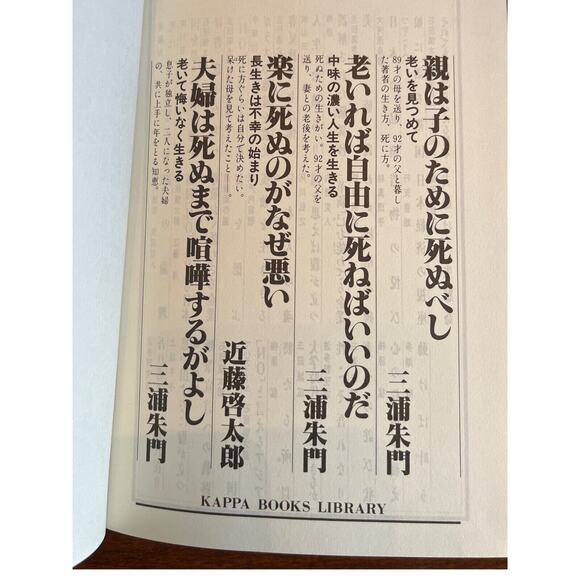 親は子のために死ぬべし
老いを見つめて
89才の母を送り、92才の父と暮し
た著者の生き方、死に方。
三浦朱門
老いれば自由に死ねばいいのだ
中味の濃い人生を生きる
死ぬための生きがい。92才の父を
送り、妻との老後を考えた。
三浦朱門
楽に死ぬのがなぜ悪い
長生きは不幸の始まり
死に方ぐらいは自分で決めたい。
呆けた母を見て考えたこと――。
近藤啓太郎
夫婦は死ぬまで喧嘩するがよし
老いて悔いなく生きる
息子が独立し、二人になった夫婦
の、共に上手に年をとる知恵。
三浦朱門
KAPPA BOOKS LIBRARY